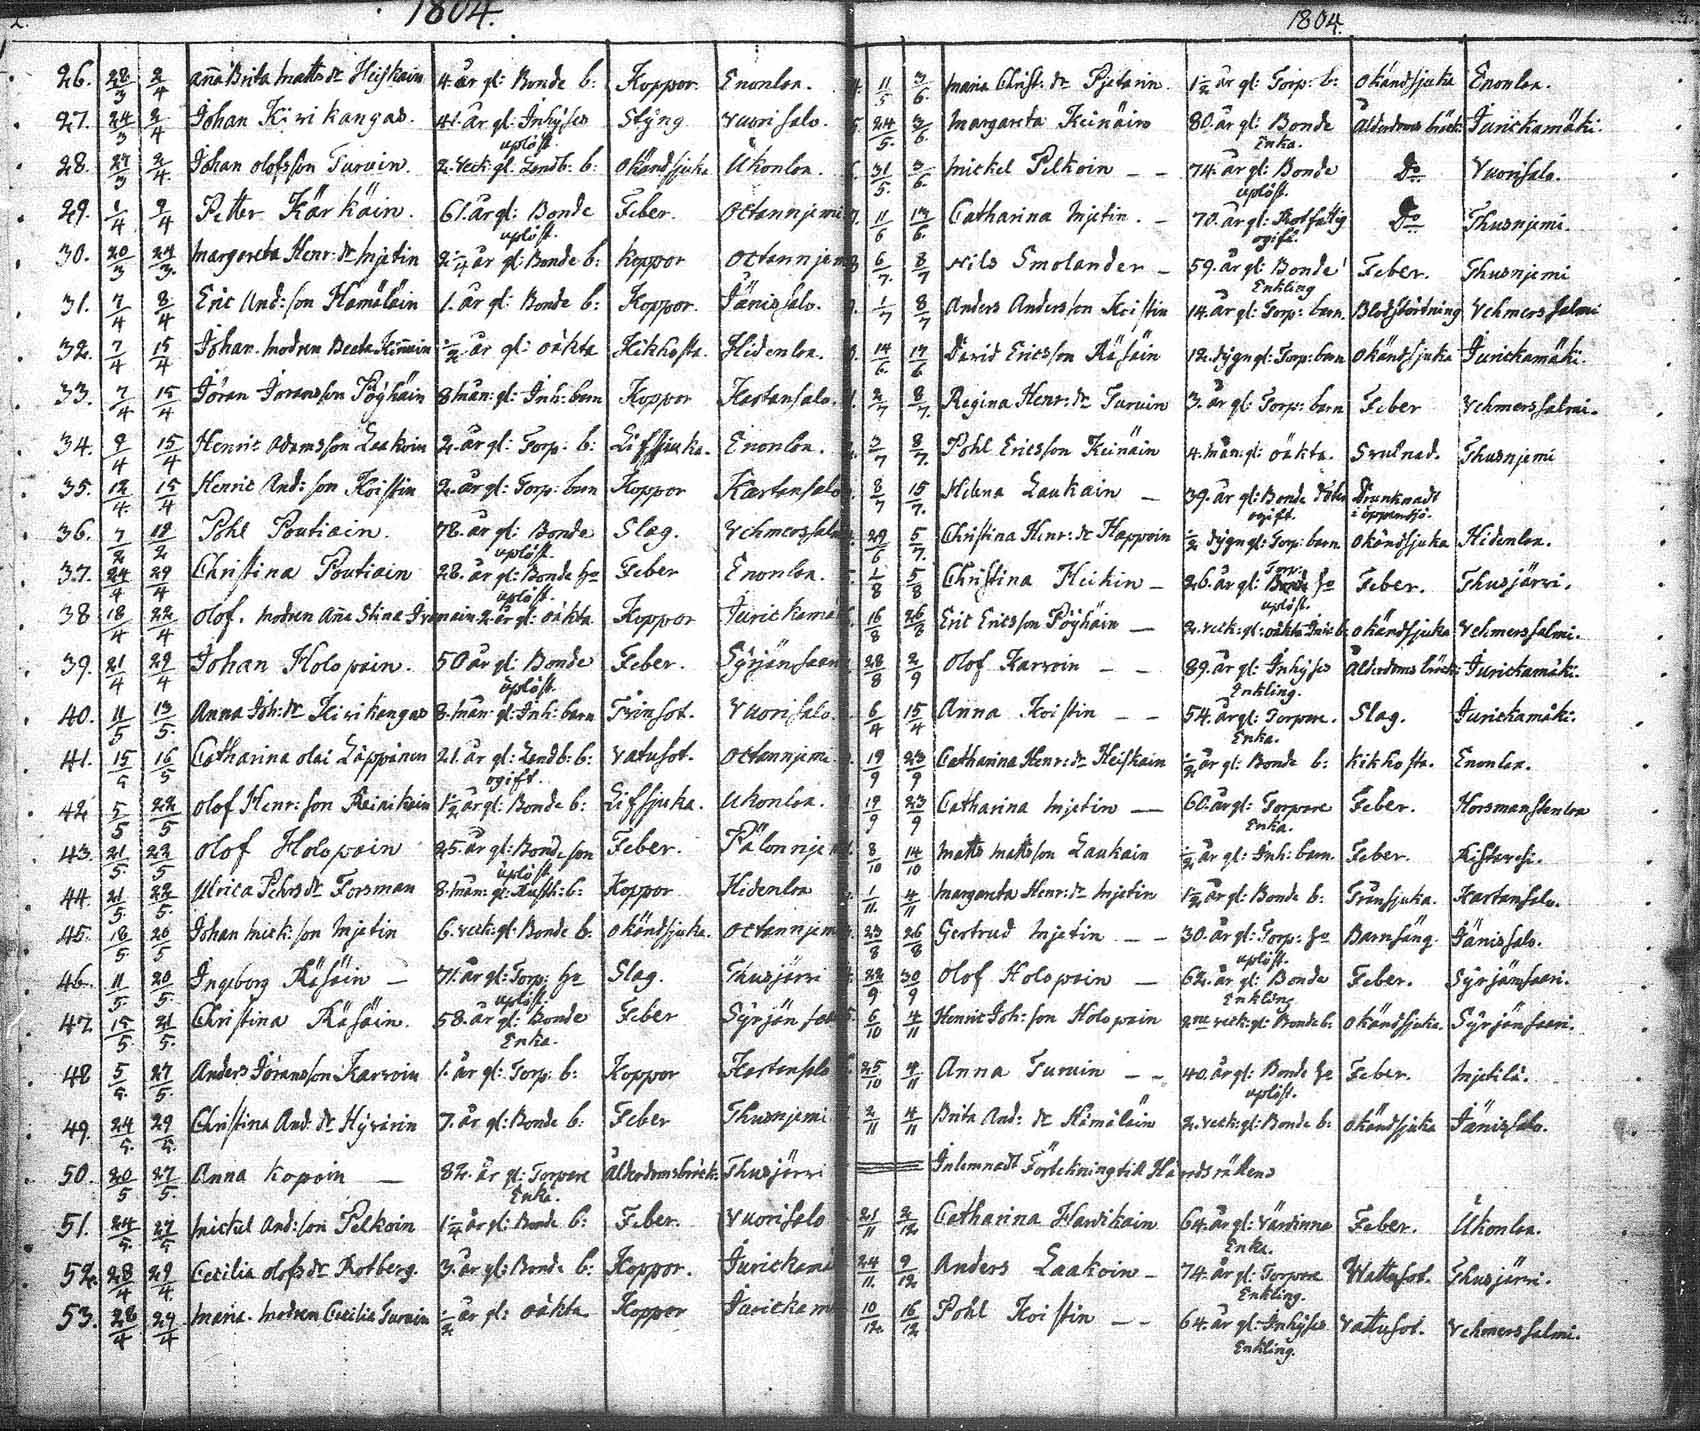 1804.
26. 28/3 2/4 Aña Brita Matts dr Heiskain 4. år gl: Bonde b: Koppor. Enonlox.
27. 24/3 2/4 Johan Kirikangas. 41. år gl: Inhyses Styng Vuorisalo.
uplöst.
28. 27/3 2/4 Johan Olofsson Turuin. 2. veck: gl. Landb: b: Okändsjuka Ukonlox.
29. 1/4 2/4 Petter Kärkäin. 61. år gl: Bonde Feber. Octannjemi
uplöst.
30. 20/3 24/3. Margareta Henr: dr Mjetin 2 1/4 år gl: Bonde b: Koppor Octannjem
31. 7/4 8/4 Eric And: son Hämäläin 1. år gl: Bonde b: Koppor. Jänissalo.
32. 7/4 15/4 Johan. modren Beata Kiñuin 1/2 år gl: oäkta Kikhosta. Hidenlox.
33. 7/4 15/4 Jöran Joransson Pöyhäin 8 mån: gl: Inh: barn Koppor Kartansalo.
34. 9/4 15/4 Henric Adamsson Laakoin 2. år gl: Torp: b: Lifsjuka. Enonlox.
35. 12/4 15/4 Henric And: son Koistin 2. år gl: Torp: barn Koppor Kartansalo
36. 7/2 12/2 Pohl Poutiain. 78. år gl: Bonde Slag. Vehmersalm
uplöst.
37. 24/4 29/4 Christina Poutiain 28. år gl: Bonde hu Feber Enonlox.
uplöst.
38 18/4 22/4 Olof. modren Aña Stina Ivamain 2. år gl: oäkta Koppor Jurickamä
39. 21/4 29/4 Johan Holopain. 50 år gl: Bonde Feber. Syrjänsaari
uplöst.
40. 11/5 13/5. Anna Joh: dr Kirikangas 8. mån: gl: Inh: barn Tvinsot. Vuorisalo.
41. 15/5 16/5 Catharina Olai Läppänen 21. år gl: Landb: b: Vatusot. Octannjemi
ogift.
42 5/5 22/5 Olof Henr: son Reinikain 1 1/2 år gl: Bonde b: Lifsjuka. Ukonlox.
43. 21/5. 22/5 Olof Holopain 25. år gl: Bonde son Feber. Pälonnjem
uplöst.
44. 21/5. 22/5. Ulrica Pehrs dr Forsman 8. mån: gl: Rusth: b: Koppor Hidenlox
45. 18/5 20/5 Johan Mick: son Mjetin 6. veck: gl: Bonde b. Okändsjuka. Octannjem
46. 11/5. 20/5. Ingeborg Räsäin — 71. år gl: Torp: hu Slag. Thusjärvi
uplöst.
47. 15/5. 21/5. Christina Räsäin. 58. år gl: Bonde Feber Syrjänsaa
Enka.
48 5/5. 27/5. Anders Jöransson Karvoin 1. år gl: Torp: b: Koppor Kartansalo
49. 24/5. 29/5. Christina And: dr Hyvärin 7. år gl: Bonde b: Feber Thusnjemi
50. 20/5 27/5. Anna Kopoin — 82. år gl: Torpare Ålderdomsbräck: Thusjärvi
Enka.
51. 24/5. 27/5 Mickel And: son Pelkoin 1 1/4 år gl: Bonde b: Feber. Vuorisalo
52. 28/4 29/4 Cecilia Olofs dr Rotberg. 3. år gl: Bonde b: Koppor. Jurickamä
53. 28/4 29/4 Maria. modren Cecilia Turuin 1/2 år gl: oäkta Koppor Jurickam
1804.
11/5 3/6. Maria Christ: dr Pjetarin. 1 1/2 år gl: Torp: b: Okändsjuka Enonlox.
24/5. 3/6. Margareta Keinäin 80. år gl: Bonde Ålderdoms bräck: Jurickamäki.
Enka.
31/5. 3/6. Mickel Pelkoin — — 74. år gl: Bonde Do Vuorisalo.
uplöst.
11/6 13/6. Catharina Mjetin. — 70. år gl: Rotfattig Do Thusnjemi.
ogift.
6/7. 8/7 Nils Smolander — 59. år gl: Bonde Feber. Thusnjemi
Enkling
1/7 8/7 Anders Andersson Koistin 14. år gl: Torp: barn. Blodstörtning Vehmerssalmi
14/6. 17/6 David Ericsson Räsäin 12. dygn gl: Torp: barn Okändsjuka Jurickamäki.
2/7 8/7. Regina Henr: dr Turuin 3. år gl: Torp: barn Feber Vehmerssalmi.
3/7 8/7. Pohl Ericsson Keinäin 4. mån: gl: oäkta. Svulnad. Thusnjemi
8/7 15/7. Helena Laukain — 39. år gl: Bonde doter Drunknadt
ogift. i öppensjö.
29/6 5/7. Christina Henr: dr Happoin 1/2 dygn gl: Torp: barn. Okändsjuka Hidenlox.
1/8 5/8 Christina Heikin — 26. år gl: Torp: hu Feber. Thusjärvi.
uplöst.
16/8 26/8 Eric Ericsson Pöyhäin — 2. veck: gl: oäkta Inh: b. Okändsjuka Vehmerssalmi.
28/8 2/9 Olof Karvoin — — 89. år gl: Inhyses Ålderdoms bräck: Jurickamäki.
Enkling.
6/4 15/4 Anna Koistin — — 54. år gl: Torpare. Slag. Jurickamäki.
Enka.
19/9 23/9 Catharina Henr: dr Heiskain 1/2 år gl: Bonde b: Kikhosta. Enonlox.
19/9 23/9 Catharina Mjetin — 60. år gl: Torpare Feber. Horsmanstenlox
Enka.
8/10 14/10 Matts Mattsson Laukain 1/2 år gl: Inh: barn. Feber.
1/11. 4/11 Margareta Henr: dr Mjetin 1 1/2 år gl: Bonde b: Tvinsjuka. Kartansalo.
23/8 26/8 Gertrud Mjetin — — 30. år gl: Torp: hu Barnsäng. Jänissalo.
uplöst.
22/9 30/9 Olof Holopain — 62. år gl: Bonde Feber. Syrjänsaari.
Enkling
6/10 4/11 Henric Joh: son Holopain 2ne veck: gl: Bonde b: Okändsjuka. Syrjänsaari.
25/10 4/11 Anna Turuin — — 40. år gl: Bonde hu Feber. Mjetilä.
uplöst.
2/11 4/11 Brita And: dr Hämäläin 2. veck: gl: Bonde b: Okändsjuka Jänissalo.
Inlemnadt Förtekning till Häradsrätten
21/11 2/12 Catharina Hardikain 64. år gl: Värdinna Feber. Ukonlox.
Enka.
24/11. 9/12 Anders Laakoin — 74. år gl: Torpare Wattusot. Thusjärvi.
Enkling.
10/12 16/12 Pohl Koistin — — 64. år gl: Inhyses Vattusot. Vehmerssalmi.
Enkling.